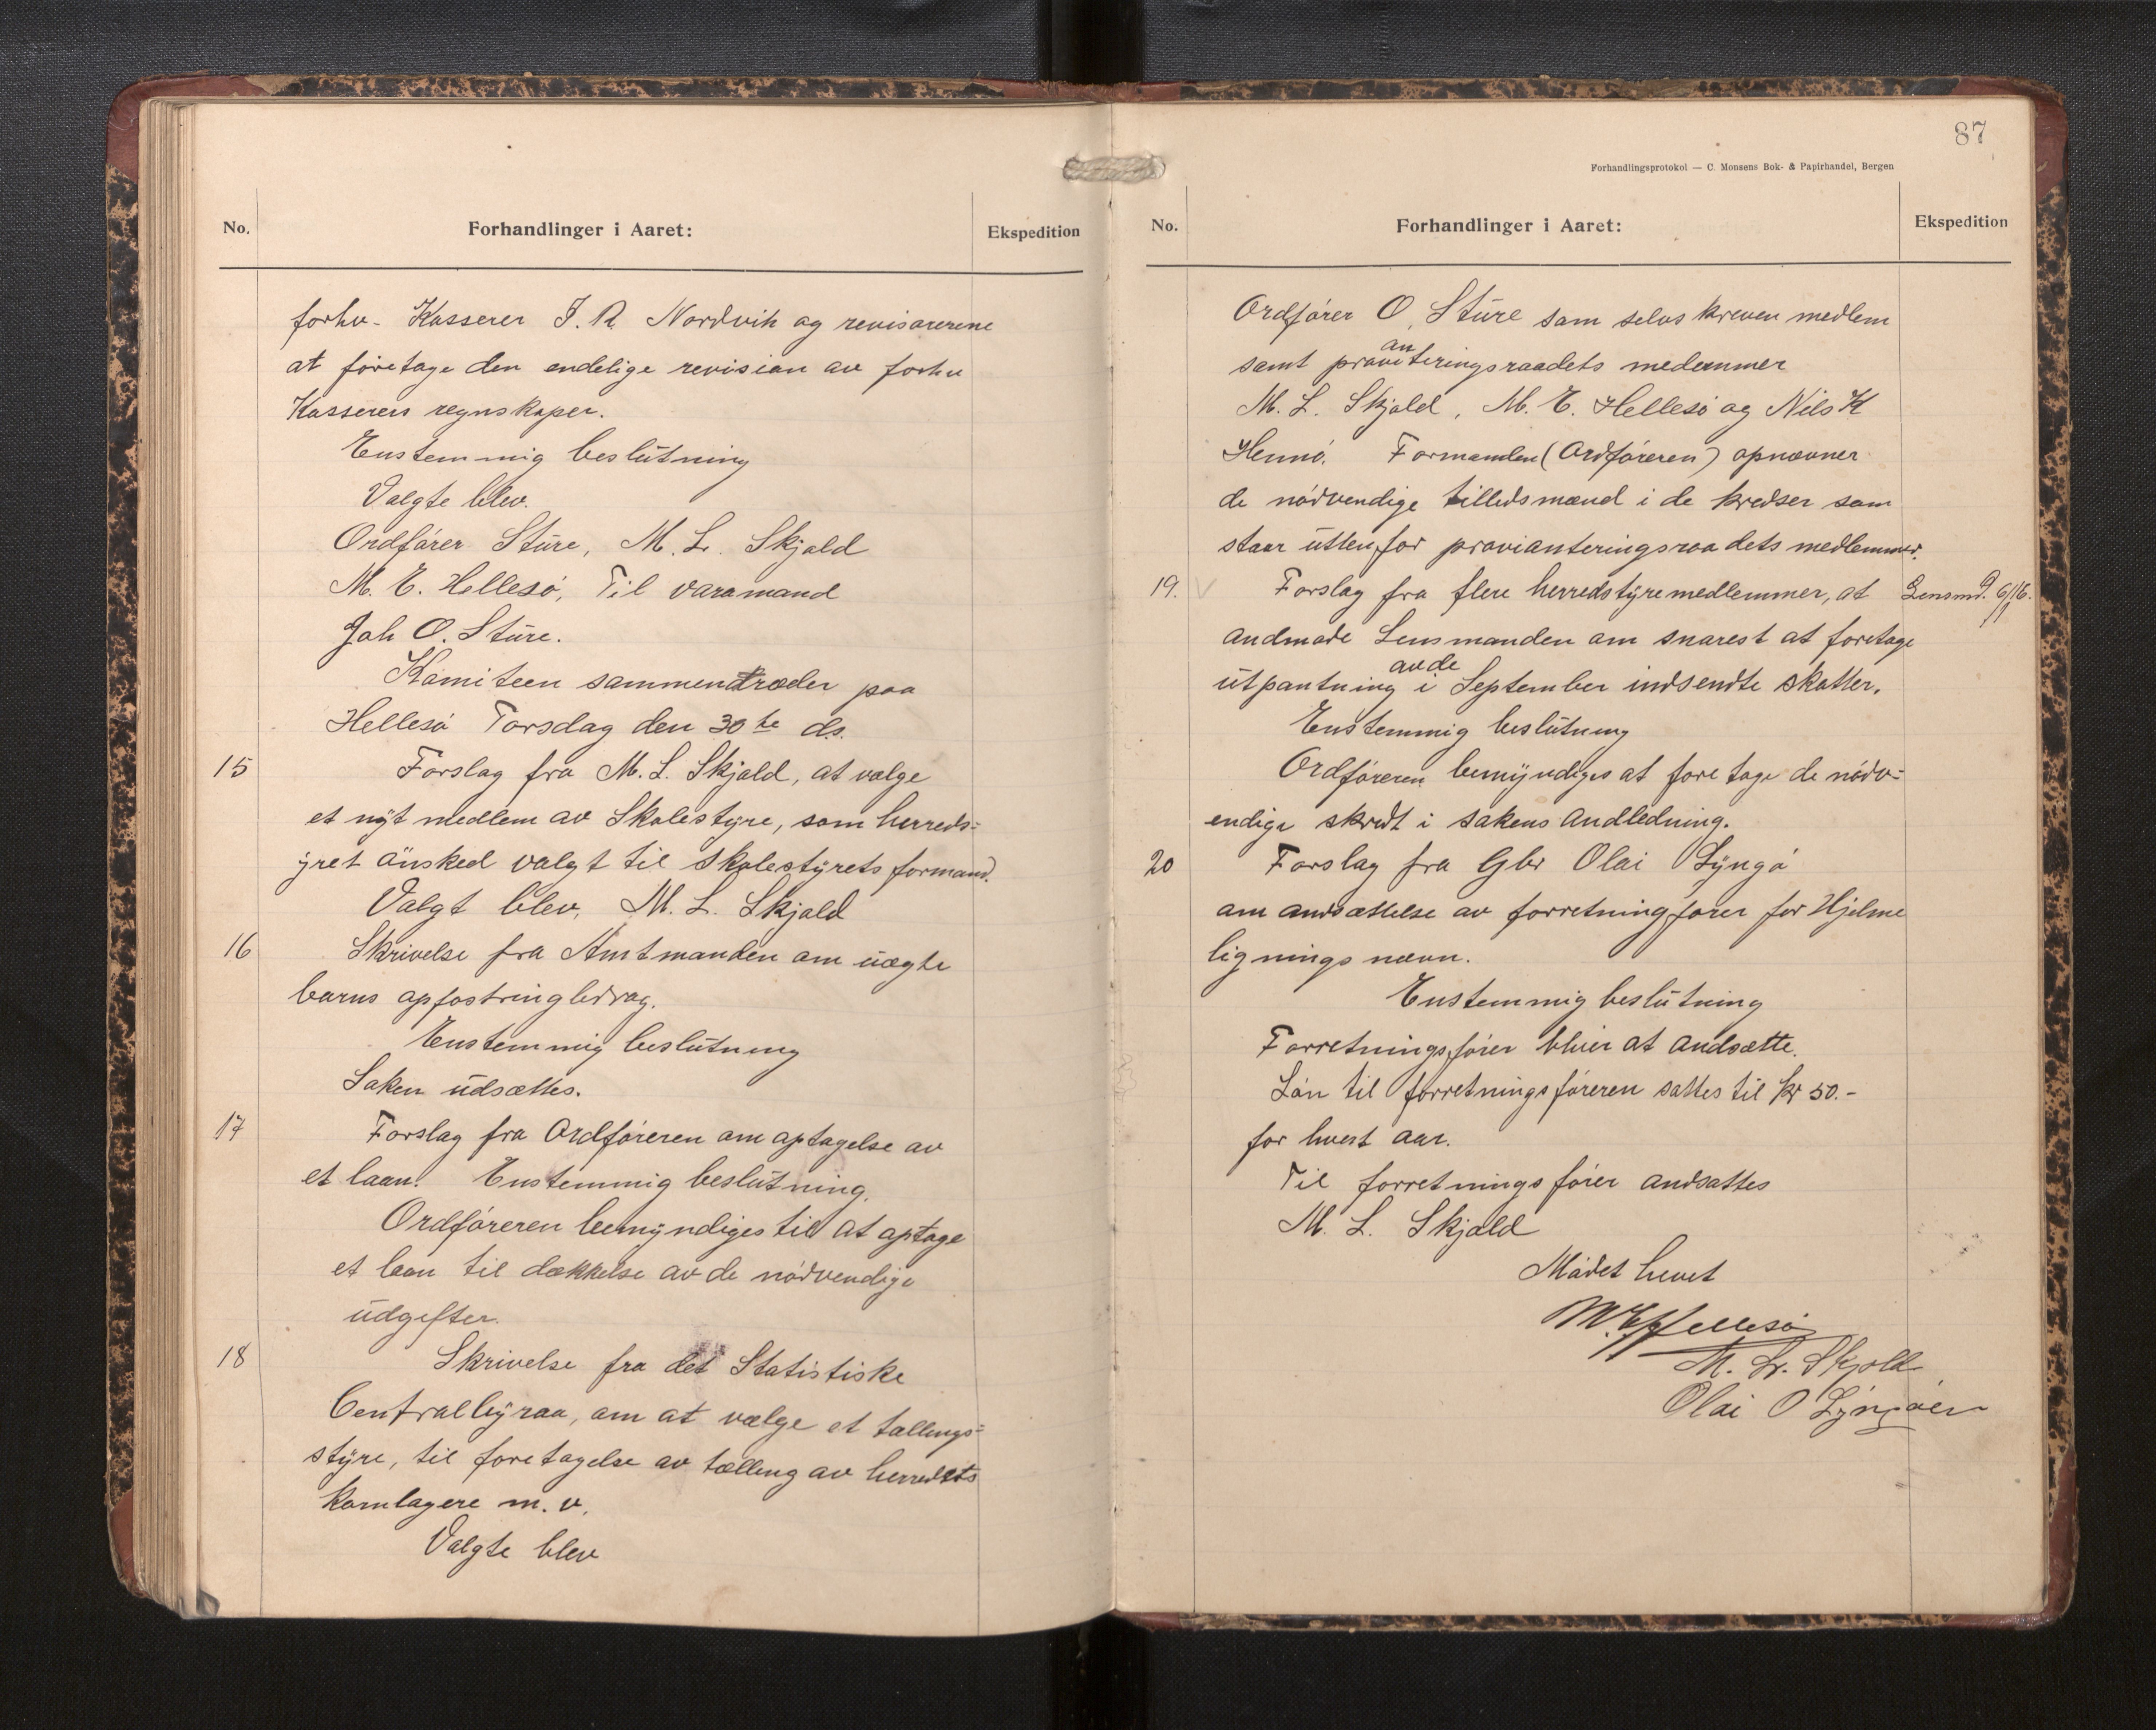 No.
Forhandlinger i Aaret:
Ekspedition
forhv. Kasserer J. R Nordvik og revisorerene
at føretage den endelige revision av forhv
Kasserers regnskaper.
Enstemmig beslutning
Valgte blev.
Ordfører Sture, M. L. Skjold
M. E. Hellesø, Til varamand
Joh O. Sture.
Komiteen sammentræder paa
Hellesø Torsdag den 30te ds.
15 Forslag fra M. L. Skjold, at vælge
et nyt medlem av Skolestyre, som herreds-
yret ønsked valgt til skolestyrets formand.
Valgt blev, M. L. Skjold
16 Skrivelse fra Amtmanden om uægte
barns opfostringbidrag.
Enstemmig beslutning
Saken udsættes.
17 Forslag fra Ordføreren om optagelse av
et laan. Enstemmig beslutning.
Ordføreren bemyndiges til at optage
et laan til dækkelse av de nødvendige
udgifter.
18 Skrivelse fra det Statistiske
Centralbyraa, om at vælge et tællings-
styre, til foretagelse av tælling av herredets
kornlagere m. v.
Valgte blev
87
Forhandlingsprotokol — C. Monsens Bok- & Papirhandel, Bergen
No.
Forhandlinger i Aaret:
Ekspedition
Ordfører O. Sture som selvskreven medlem
an
samt proviteringsraadets medemmer
M. L. Skjold, M. E. Hellesø og Nils K
Hennø. Formanden (Ordføreren) opnævner
de nødvendige tillidsmænd i de kredser som
staar utten for provianteringsraadets medlemmer.
19. Forslag fra flere herredstyremedlemmer, at Lensmd. 6/1 16.
andmode Lensmanden om snarest at foretage
av de
utpantning i September indsendte skatter.
Enstemmig beslutning
Ordføreren bemyndiges at foretage de nødv-
endige skridt i sakens andledning.
20 Forslag fra Gbr Olai Lyngø
om andsættelse av forretningfører for Hjelme
lignings nævn.
Enstemmig beslutning
Forretningsfører bliver at andsætte.
Løn til forretningsføreren sattes til kr 50.-
for hvert aar.
Til forretningsfører andsattes
M. L. Skjold
Mødet hevet
M. E. Hellesø
M. L. Skjold
Olai O Lyngøen